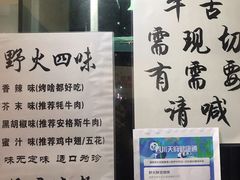 野火四味
香辣味(烤啥都好吃)
芥末味(推荐牦牛肉)
黑胡椒味(推荐安格斯牛肉)
蜜汁味(推荐鸡中翅/五花)
味无定味 适口为珍
牛舌
需现切
有需
请喊
四川天府健康通